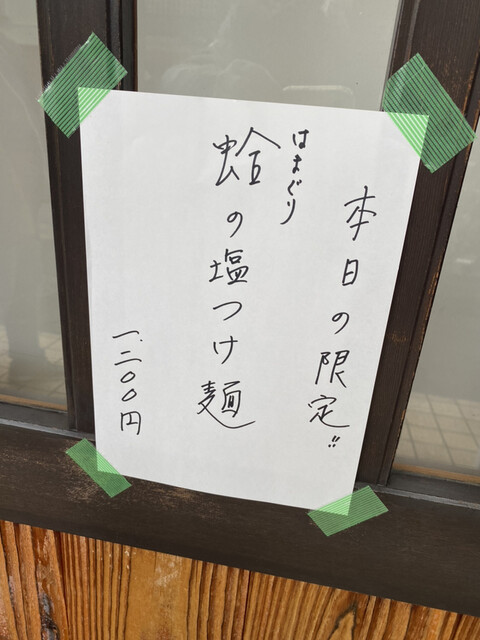 本日の限定!!
はまぐり
蛤の塩つけ麺
一、二〇〇円